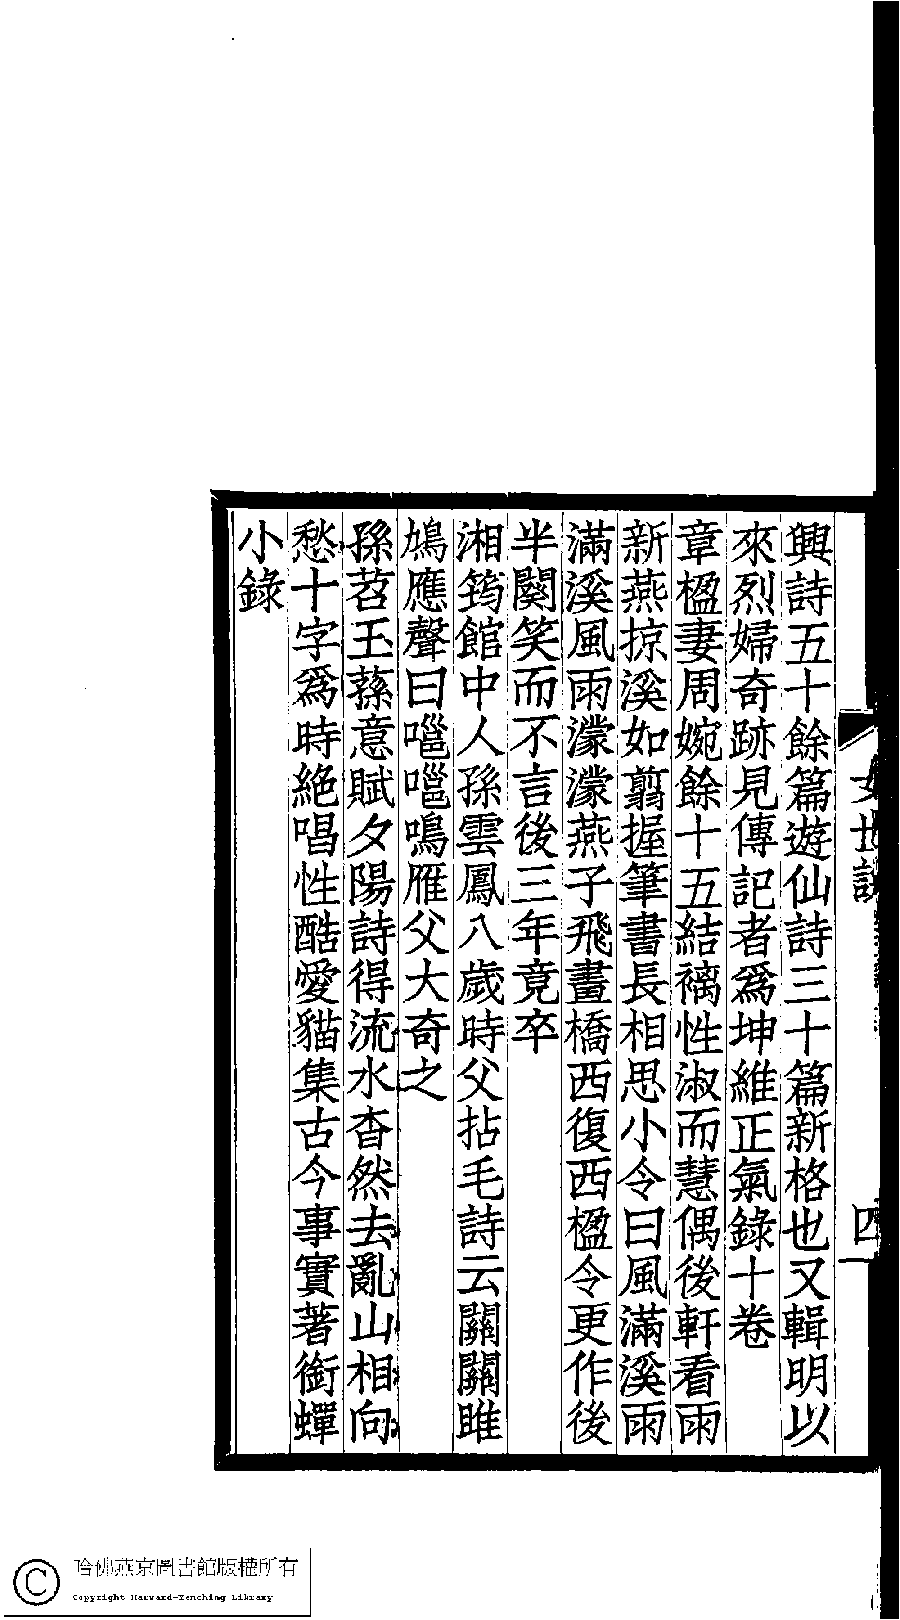 女世說
四
興詩五十餘篇遊仙詩三十篇新格也又輯明以
來烈婦奇跡見傳記者爲坤維正氣錄十卷
章楹妻周婉餘十五結褵性淑而慧偶後軒看雨
新燕掠溪如翦握筆書長相思小令曰風滿溪雨
滿溪風雨濛濛燕子飛畫橋西復西楹令更作後
半闋笑而不言後三年竟卒
湘筠館中人孫雲鳳八歲時父拈毛詩云關關雎
鳩應聲曰嗈嗈鳴雁父大奇之
孫苕玉蓀意賦夕陽詩得流水杳然去亂山相向
愁十字爲時絕唱性酷愛貓集古今事實著銜蟬
小錄
哈佛燕京圖書館版權所有
Copyright Harvard-Yenching Library